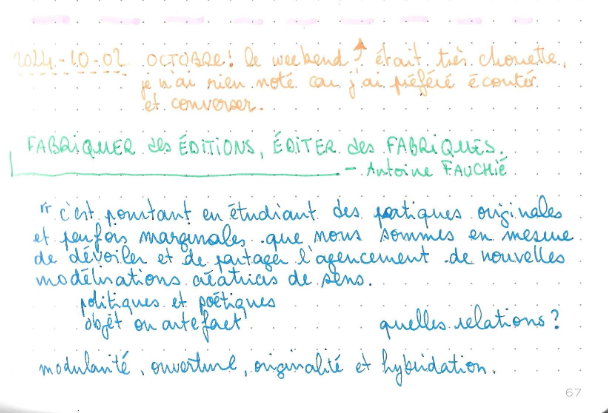 2024-10-02 OCTOBRE! le weekend était très chouette,
je n'ai rien noté car j'ai préféré écouter
et converser.
FABRIQUER des ÉDITIONS, ÉDITER des FABRIQUES.
— Antoine FAUCHIÉ
" c'est pourtant en étudiant des pratiques originales
et parfois marginales que nous sommes en mesure
de dévoiler et de partager l'agencement de nouvelles
modélisations créatrices de sens.
politiques et poétiques
objet ou artefact quelles relations?
modularité, ouverture, originalité et hybridation.
67